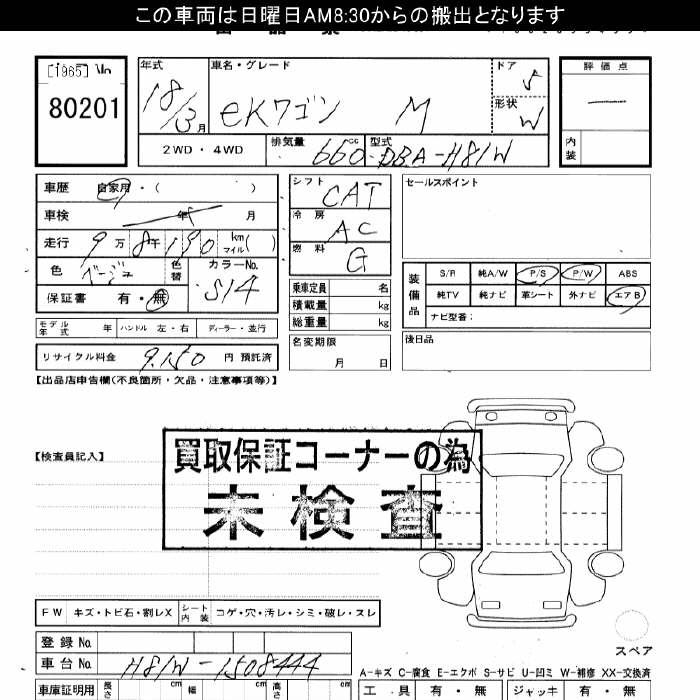 この車両は日曜日AM8:30からの搬出となります
[1965]
80201
年式 18/3月
車名・グレード eKワゴン M
ドア 5
形状 W
2WD・4WD 排気量 660cc 型式 DBA-H81W
評価点 —
内装
車歴 自家用・( )
車検 年 月
走行 9万8千190 km マイル( )
色 ベージュ 色替 カラーNo. S14
保証書 有・無
モデル年式 年 ハンドル 左・右 ディーラー・並行
リサイクル料金 9,150 円 預託済
シフト CAT
冷房 AC
燃料 G
乗車定員 名
積載量 kg
総重量 kg
名変期限 月 日
セールスポイント
装備品
S/R 純A/W P/S P/W ABS
純TV 純ナビ 革シート 外ナビ エアB
ナビ型番:
後日品
【出品店申告欄(不良箇所・欠品・注意事項等)】
【検査員記入】
買取保証コーナーの為
未検査
FW キズ・トビ石・割レX シート内装 コゲ・穴・汚レ・シミ・破レ・スレ
登録No
車台No H81W-1508444
車庫証明用 長さ cm 幅 cm 高さ cm
スペア
A-キズ C-腐食 E-エクボ S-サビ U-凹ミ W-補修 XX-交換済
工具 有・無 ジャッキ 有・無